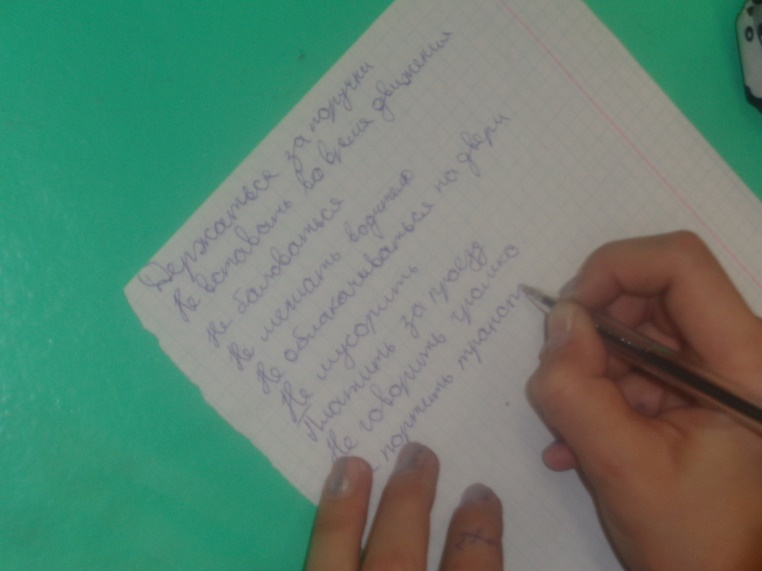 Держаться за поручки
Не вставать во время движения
Не баловаться
Не мешать водителю
Не облакачиваться на двери
Не мусорить
Платить за проезд
Не говорить громко
портить